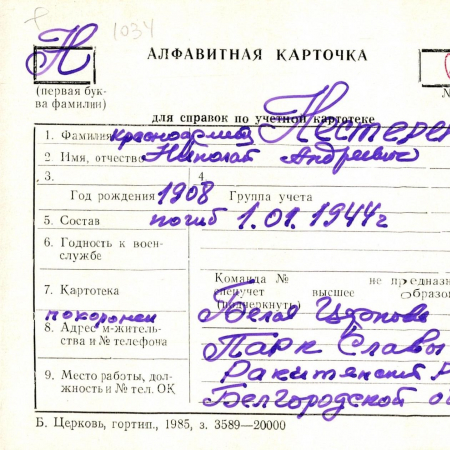 1034
Н
АЛФАВИТНАЯ КАРТОЧКА
(первая бук-
ва фамилии)
№
для справок по учетной картотеке
1. Фамилия красноармеец Нестерен
2. Имя, отчество Николай Андреевич
3. 4.
Год рождения 1908 Группа учета
5. Состав погиб 1.01.1944г
6. Годность к воен-
службе
Команда № не предназна
7. Картотека спецучет высшее образо
(подчеркнуть)
похоронен Белая
8. Адрес м-житель-
ства и № телефона
Парк Славы
Ракитянский Р
9. Место работы, дол-
жность и № тел. ОК
Белгородской о
Б. Церковь, гортип., 1985, з. 3589—20000